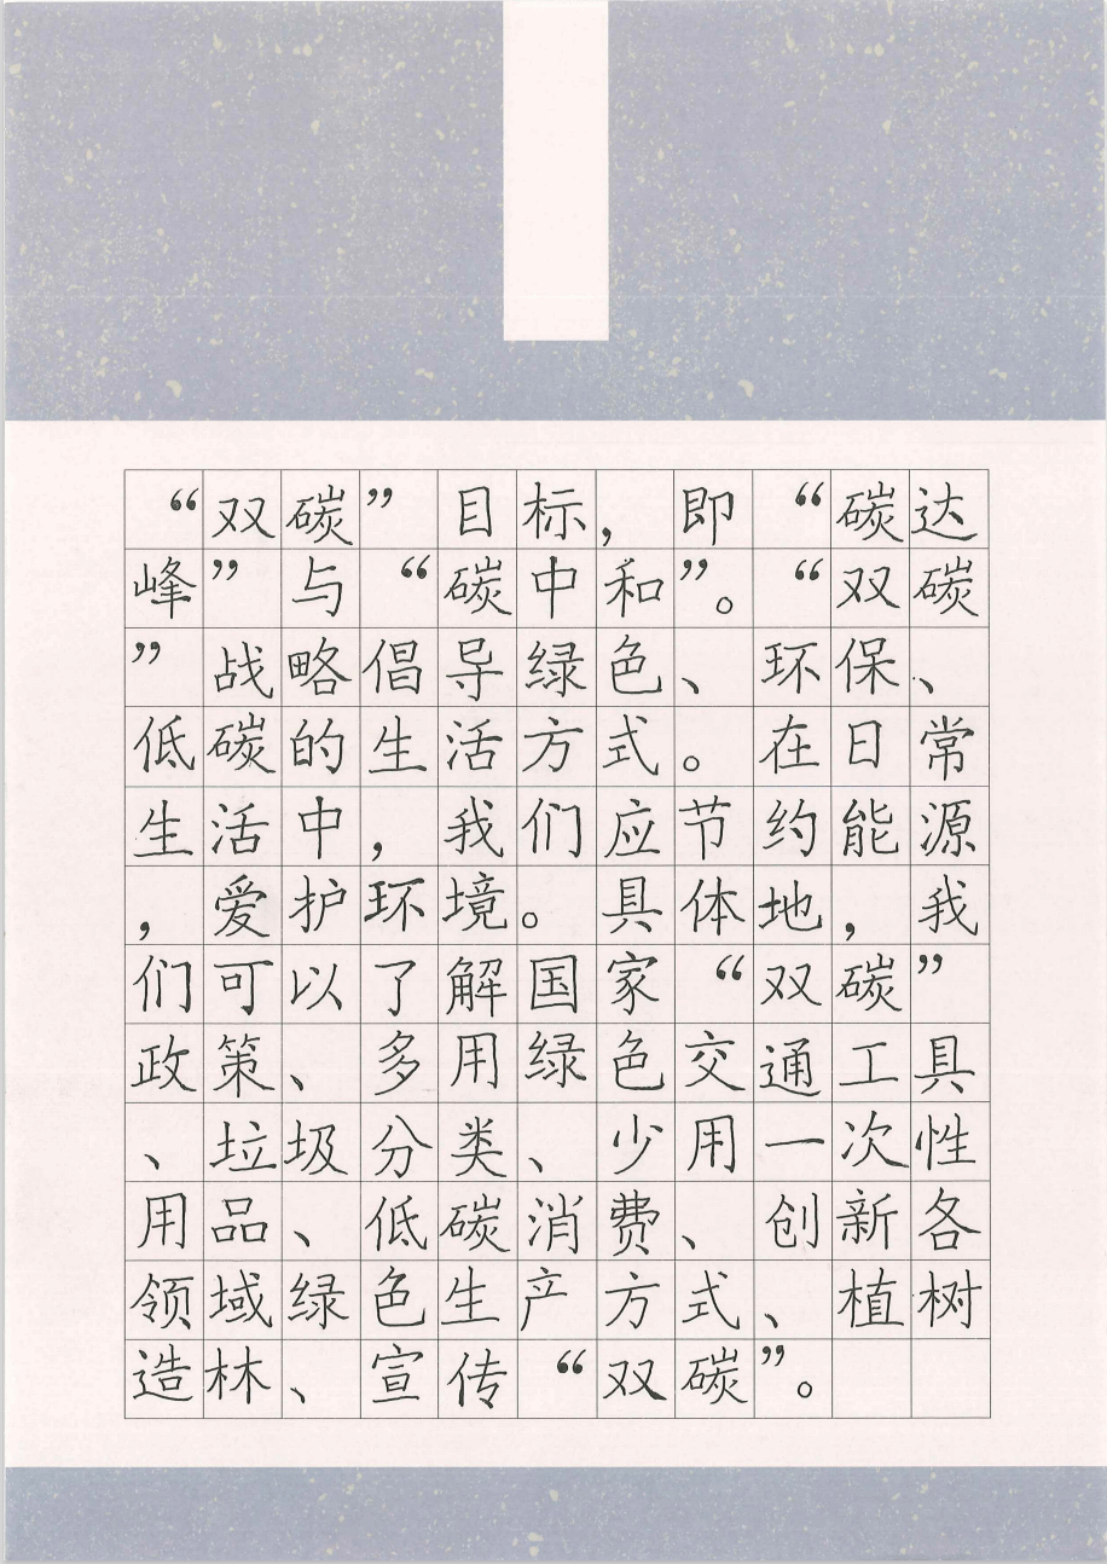 “双碳”目标，即“碳达
峰”与“碳中和”。“双碳
”战略倡导绿色、环保、
低碳的生活方式。在日常
生活中，我们应节约能源
，爱护环境。具体地，我
们可以了解国家“双碳”
政策、多用绿色交通工具
、垃圾分类、少用一次性
用品、低碳消费、创新各
领域绿色生产方式、植树
造林、宣传“双碳”。